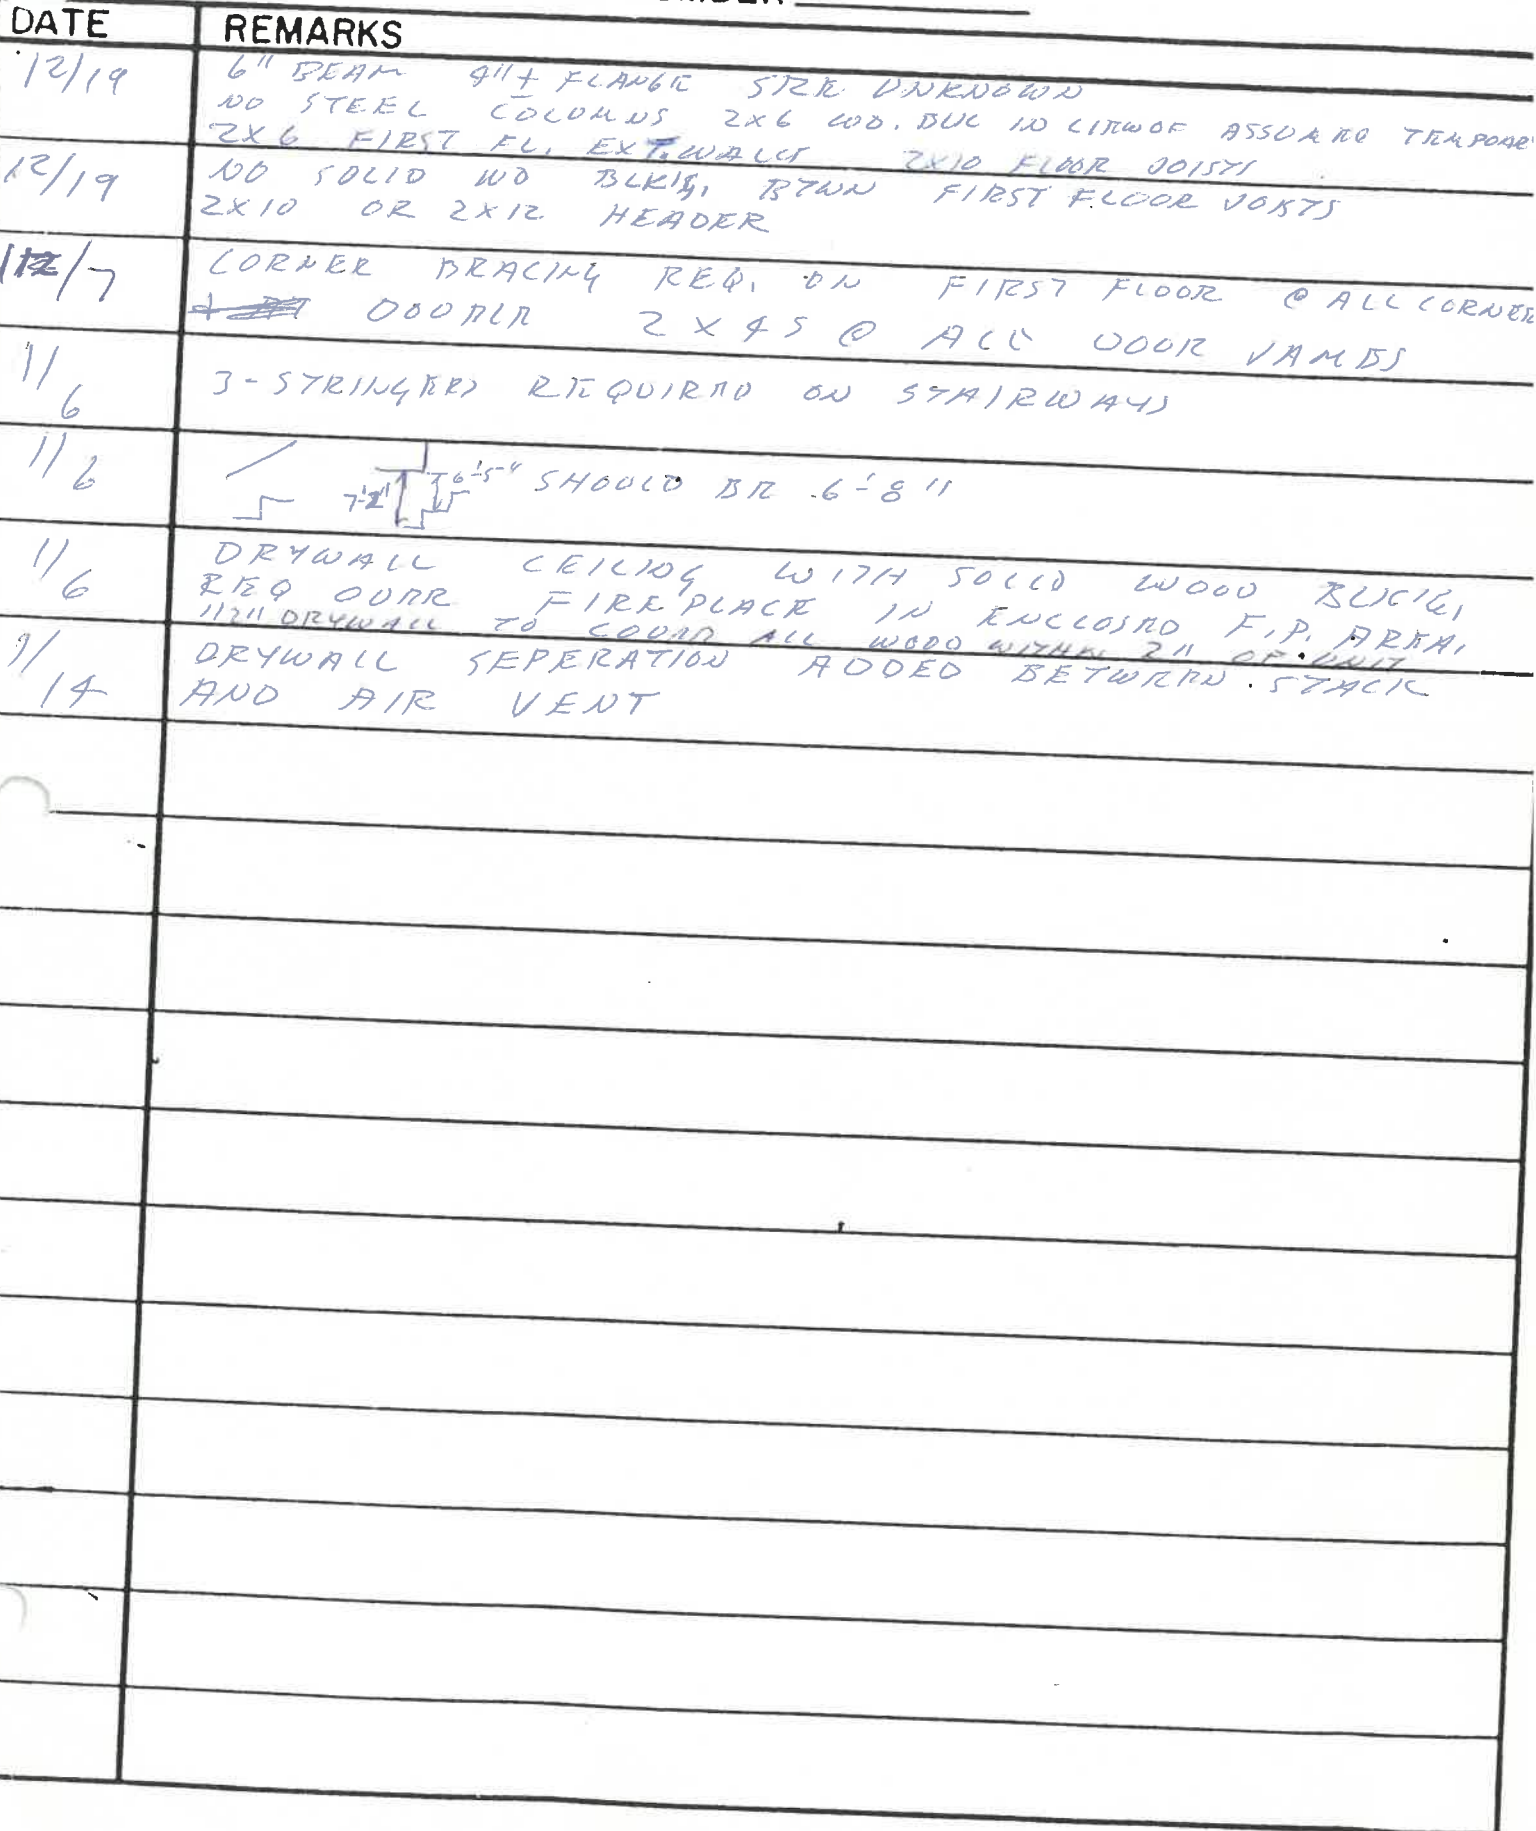 DATE REMARKS
12/19 6" BEAM 4"± FLANGE SIZE UNKNOWN
NO STEEL COLUMNS 2X6 WD. IN LIEU OF ASSUMED
2X6 FIRST FL. EXT. WALLS 2X10 FLOOR JOISTS
12/19 NO SOLID WD BLK'G. BTWN FIRST FLOOR JOISTS
2X10 OR 2X12 HEADER
/7 CORNER BRACING REQ. ON FIRST FLOOR @ ALL CORNER
DOUBLE 2X4S @ ALL DOOR JAMBS
1/6 3-STRINGERS REQUIRED ON STAIRWAYS
1/6 7'2" 6'-5" SHOULD BE 6'-8"
1/6 DRYWALL CEILING WITH SOLID WOOD BLK'G,
REQ OVER FIREPLACE IN ENCLOSED F.P. AREA,
1/2" DRYWALL TO COVER ALL WOOD WITHIN 2" OF UNIT
1/14 DRYWALL SEPERATION ADDED BETWEEN STACK
AND AIR VENT